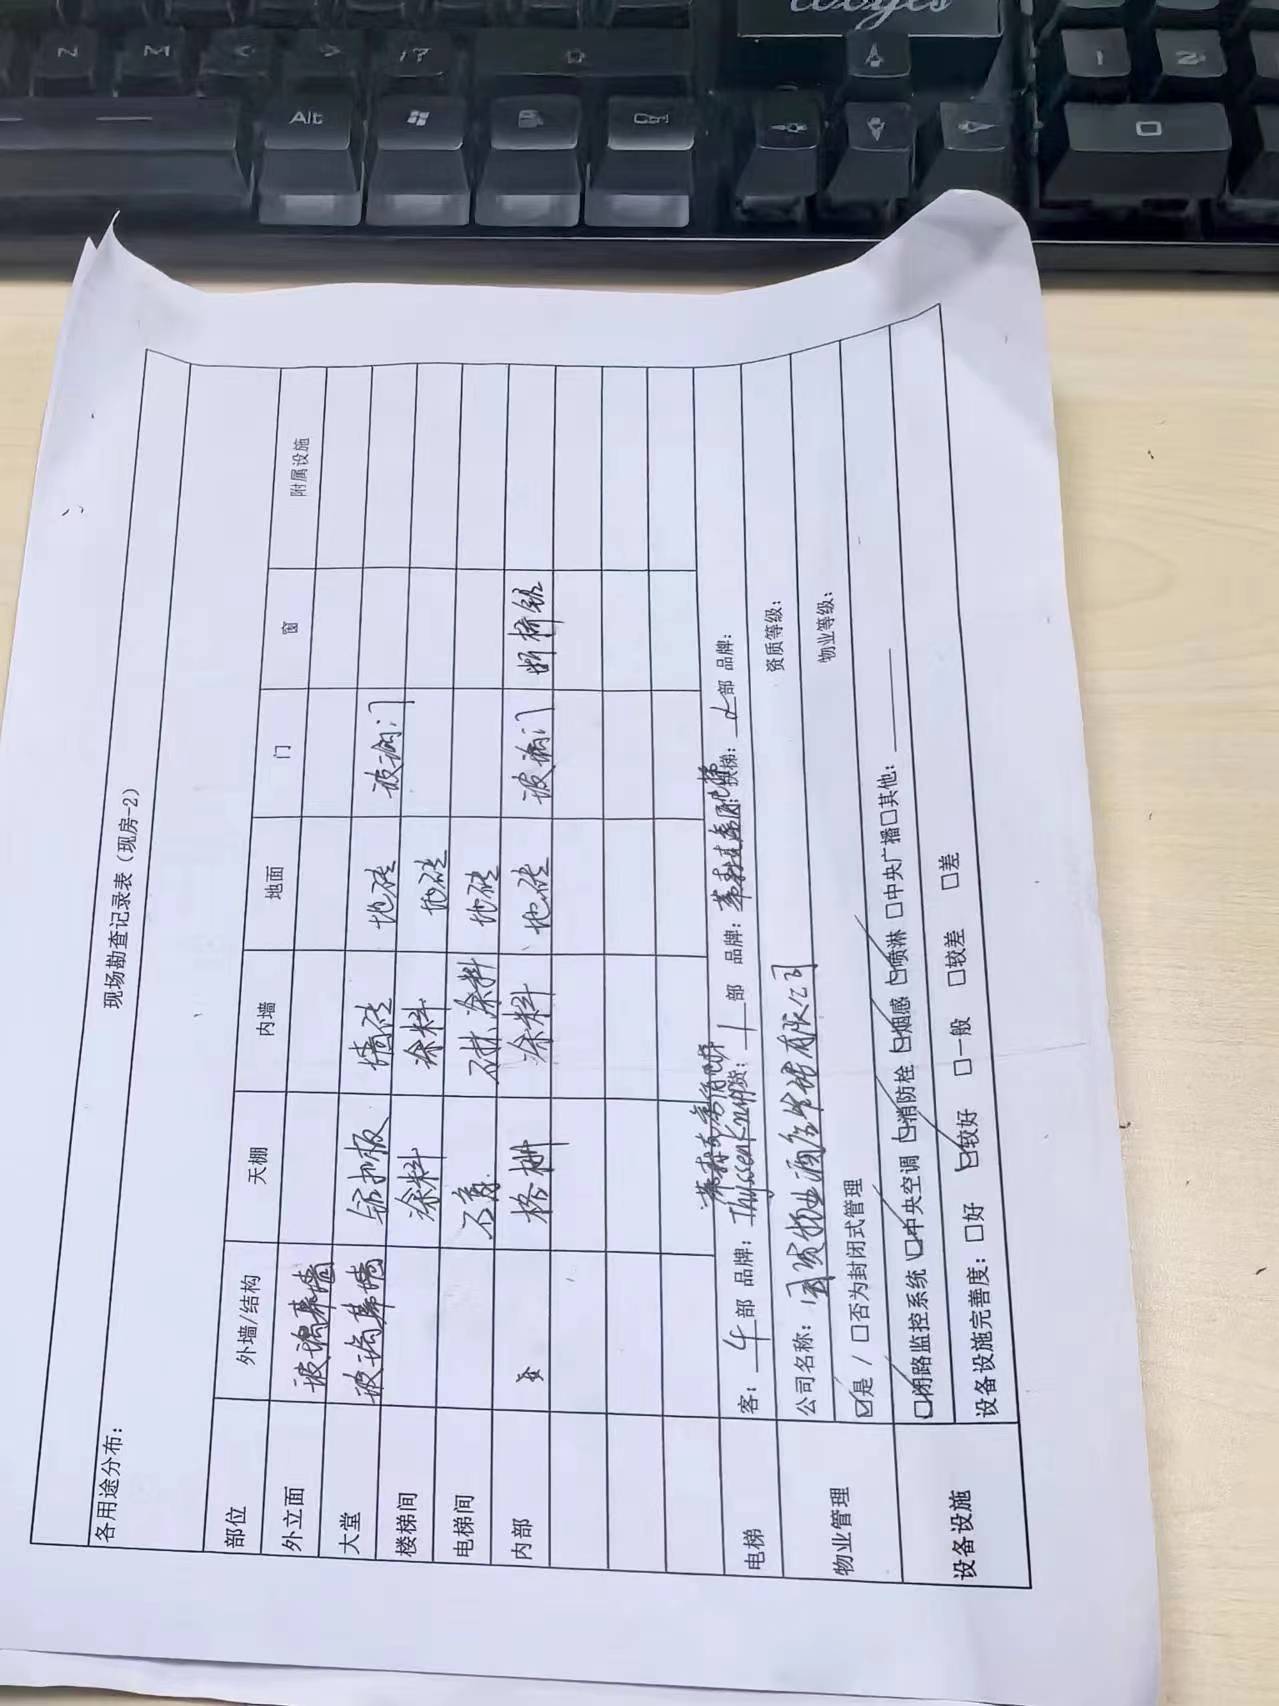 现场勘查记录表（现房-2）
各用途分布：
部位 外墙/结构 天棚 内墙 地面 门 窗 附属设施
外立面 玻璃幕墙
大堂 玻璃幕墙 铝扣板 墙砖 地砖 玻璃门
楼梯间 涂料 涂料 地砖
电梯间 石膏 石材、涂料 地砖
内部 格栅 涂料 地砖 玻璃门 断桥铝
电梯 客：4部 品牌：Thyssenkrupp 货：1部 品牌： 扶梯：2部 品牌：
物业管理 公司名称：国贸物业酒店管理有限公司 资质等级：
☑是 / □否为封闭式管理 物业等级：
设备设施 ☑闭路监控系统 ☑中央空调 ☑消防栓 ☑烟感 ☑喷淋 □中央广播 □其他：
设备设施完善度： □好 ☑较好 □一般 □较差 □差
Alt
N
M
<
>
/?
1
2
0